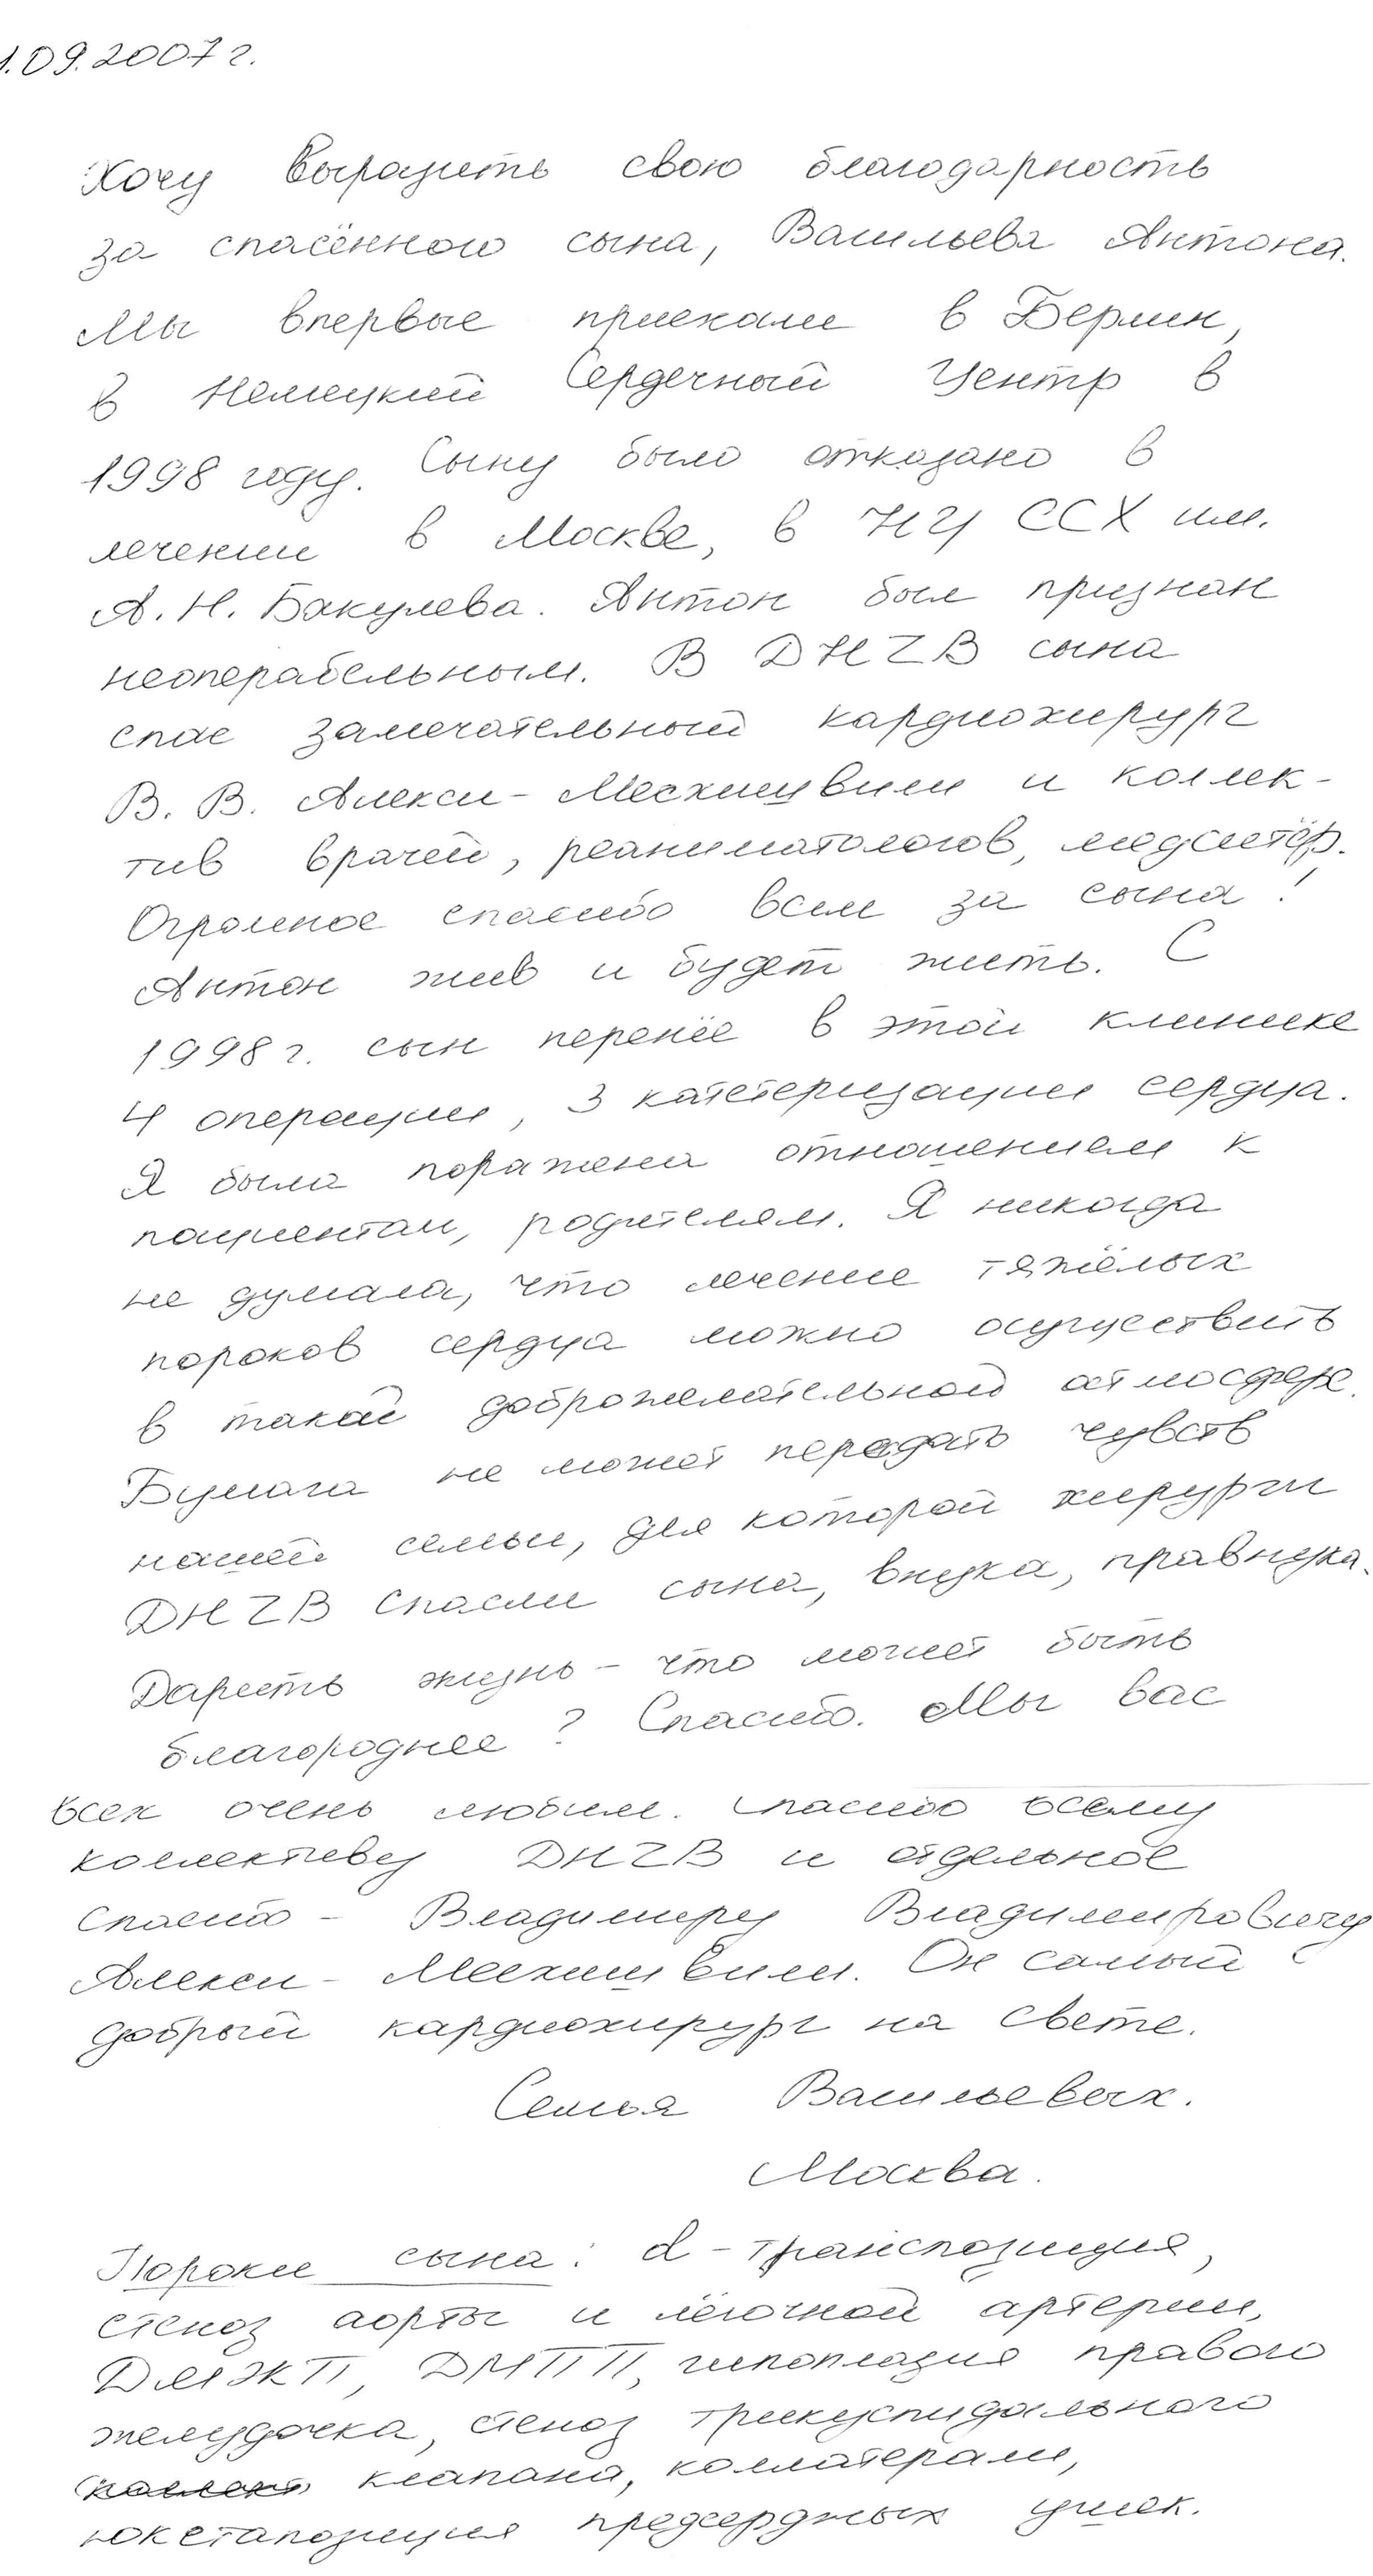 1.09.2007 г.
Хочу выразить свою благодарность
за спасённого сына, Васильева Антона.
Мы впервые приехали в Берлин,
в Немецкий Сердечный Центр в
1998 году. Сыну было отказано в
лечении в Москве, в НЦ ССХ им.
А.Н. Бакулева. Антон был признан
неоперабельным. В DHZB сына
спас замечательный кардиохирург
В.В. Алекси-Месхишвили и коллек-
тив врачей, реаниматологов, медсестёр.
Огромное спасибо всем за сына!
Антон жив и будет жить. С
1998 г. сын перенёс в этой клинике
4 операции, 3 катетеризации сердца.
Я была поражена отношением к
пациентам, родителям. Я никогда
не думала, что лечение тяжёлых
пороков сердца можно осуществить
в такой доброжелательной атмосфере.
Бумага не может передать чувств
нашей семьи, для которой хирурги
DHZB спасли сына, внука, правнука.
Дарить жизнь – что может быть
благороднее? Спасибо. Мы вас
всех очень любим. Спасибо всему
коллективу DHZB и отдельное
спасибо – Владимиру Владимировичу
Алекси-Месхишвили. Он самый
добрый кардиохирург на свете.
Семья Васильевых.
Москва.
Пороки сына: d-транспозиция,
стеноз аорты и лёгочной артерии,
ДМЖП, ДМПП, гипоплазия правого
желудочка, стеноз трикуспидального
клапана, коллатерали,
юкстапозиция предсердных ушек.